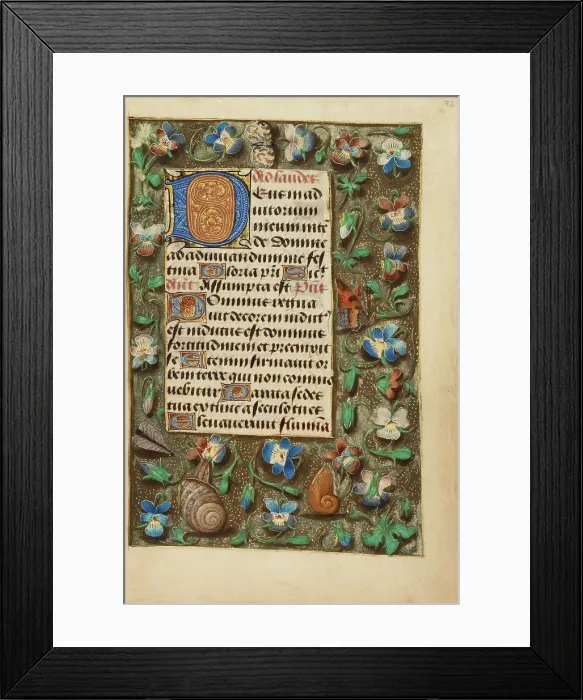 Eus in ad
iutorium
meum inte
de domine
ad adiuuandum me fes
tina
Assumpta est
Ominus regnauit
decorem indut
est indutus est dominus
fortitudinem et precinxit
se Etenim firmauit or
bem terre qui non commo
uebitur Parata sedes
tua ex tunc a seculo tu es
leuauerunt flumina